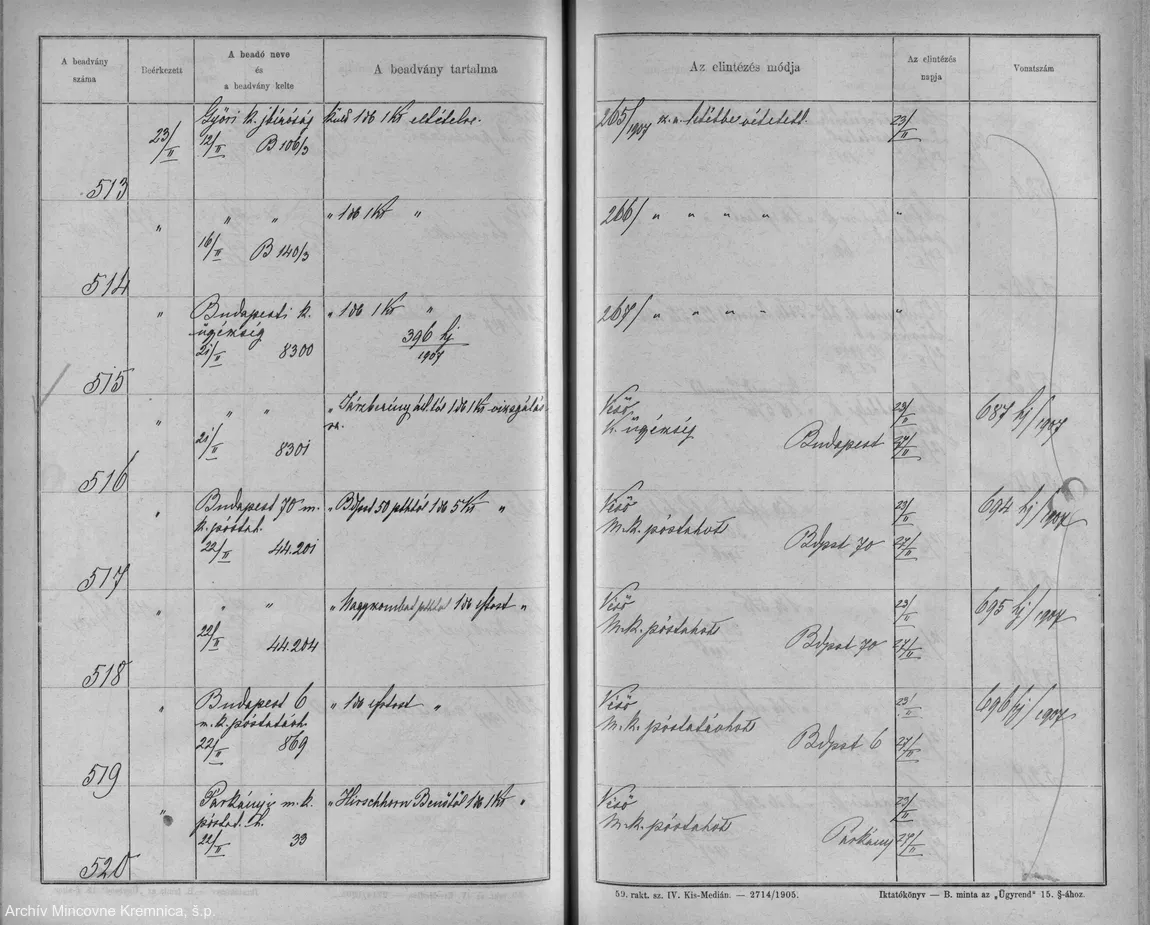 A beadvány száma
Beérkezett
A beadó neve és a beadvány kelte
A beadvány tartalma
Az elintézés módja
Az elintézés napja
Vonatszám
513
23/II
Győri k. jbíróság
12/II B 106/3
küld 1 db 1 Kr eltételre.
265/1907 sz. a. letétbe vétetett.
23/II
514
" " "
16/II B 140/3
" 1 db 1 Kr "
266/ " " " "
"
515
" Budapesti k. ügyészség
21/II 8300
" 1 db 1 Kr "
396 hj/1907
267/ " " " "
"
516
" " "
21/II 8301
" Jászberény 1 db 1 Kr vizsgálásra.
Véső
k. ügyészség
Budapest
23/II
27/II
687 hj/1907
517
" Budapest 70 m. k. póstat.
22/II 44.201
" Bdpest 50 pthtól 1 db 5 Kr "
Véső
m. k. póstahot
Bdpst 70
23/II
27/II
694 hj/1907
518
" " "
22/II 44.204
" Nagykombat 1 db "
Véső
m. k. póstahot
Bdpst 70
23/II
27/II
695 hj/1907
519
" Budapest 6
m. k. póstatávh.
22/II 869
" 1 db "
Véső
m. k. póstatávhot
Bdpst 6
23/II
27/II
696 hj/1907
520
" Párkányi m. k.
póstat. h.
22/II 33
" Hirschhorn Benőtől 1 db 1 Kr "
Véső
m. k. póstahot
Párkány
23/II
27/II
59. rakt. sz. IV. Kis-Medián. — 2714/1905.
Iktatókönyv — B. minta az „Ügyrend" 15. §-ához.
Archív Mincovne Kremnica, š.p.